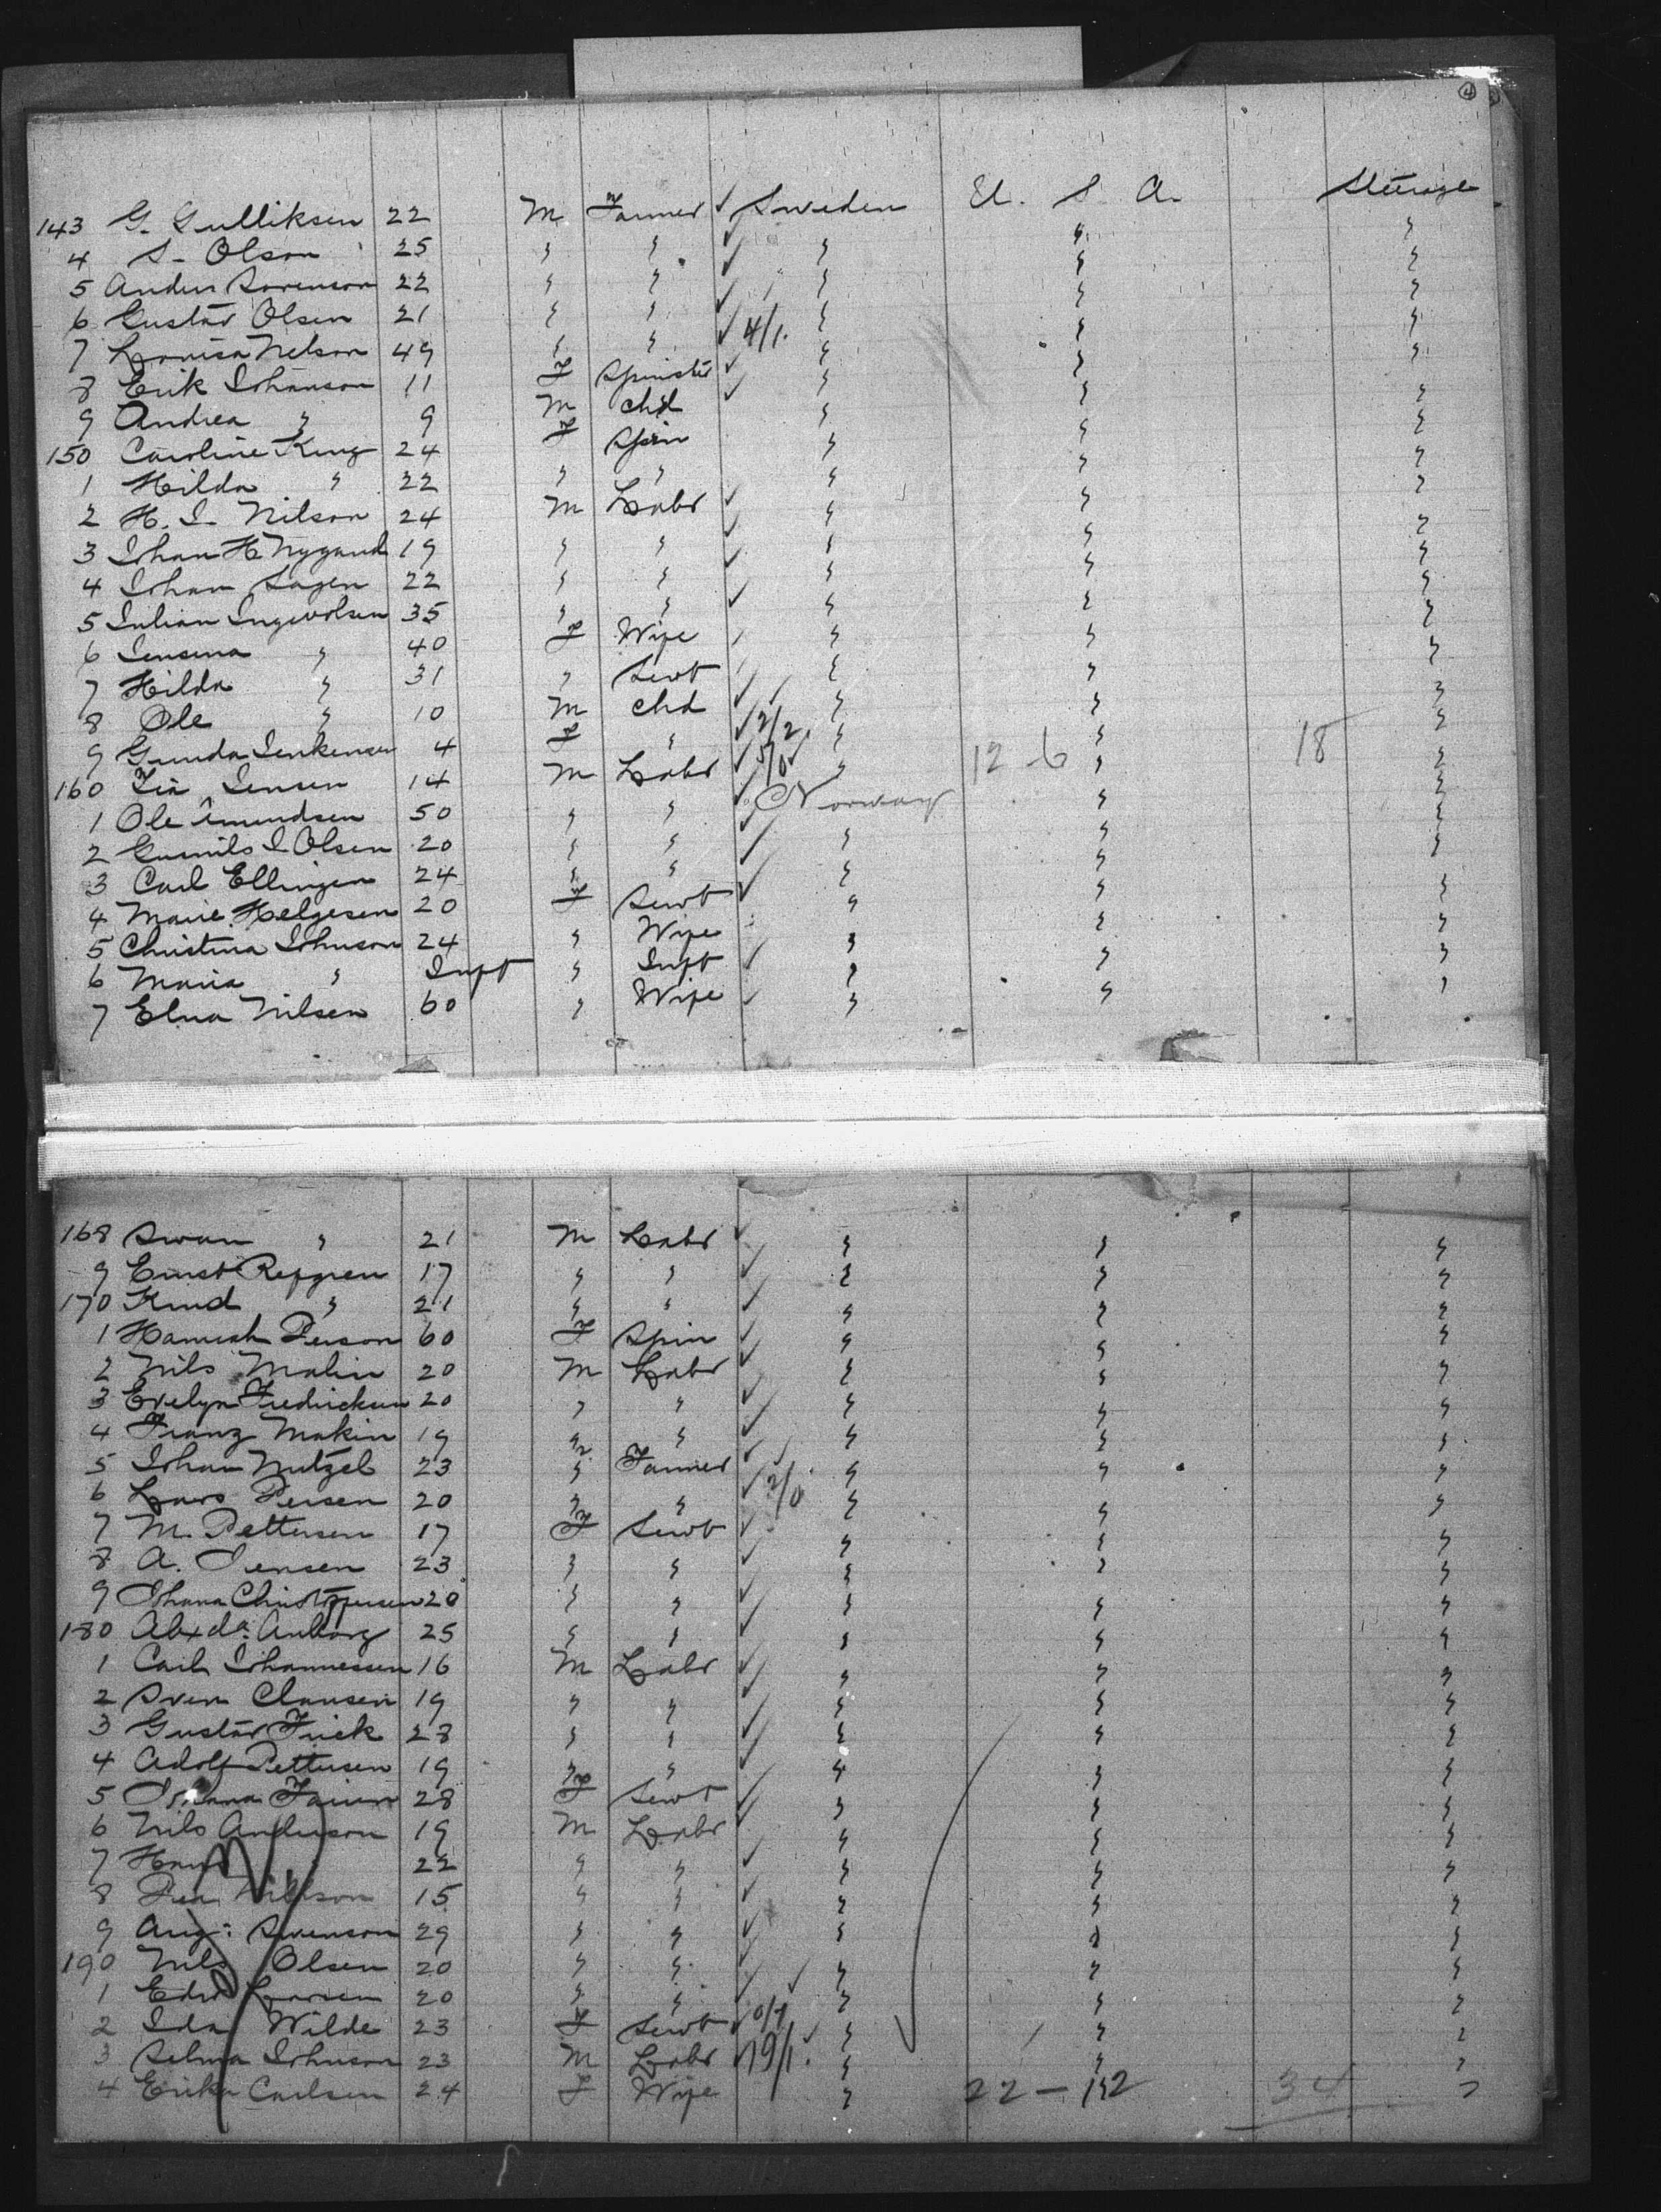 4
143 G. Gulliksen 22 M Farmer ✓ Sweden U. S. A. Steerage
4 S. Olson 25 " " ✓ " " "
5 Anders Sorenson 22 " " ✓ " " "
6 Gustav Olsen 21 " " ✓ " " "
7 Lovisa Nelson 49 F Spinster ✓ 4/1. " " "
8 Erik Johanson 11 M chd ✓ " " "
9 Andrea " 9 F Spin ✓ " " "
150 Caroline King 24 " " " " "
1 Hilda " 22 " " " " "
2 H. J. Nilson 24 M Labr ✓ " " "
3 Johan H Nygand 19 " " ✓ " " "
4 Johan Sagen 22 " " ✓ " " "
5 Julian Ingevolsen 35 " " ✓ " " "
6 Jensena " 40 F Wife " " "
7 Hilda " 31 " Servt " " "
8 Ole " 10 M chd ✓ " " "
9 Gunda Jenkensen 4 F " ✓ 2/2. " " "
160 Jensen 14 M Labr ✓ 5/0 " 12 - 6 " 18 "
1 Ole Amundsen 50 " " ✓ Norway " "
2 Gunnils J Olsen 20 " " ✓ " " "
3 Carl Ellingen 24 " " ✓ " " "
4 Marie Helgesen 20 F Servt ✓ " " "
5 Christina Johnson 24 " Wife " " "
6 Maria " Inft " Inft ✓ " " "
7 Elna Nilsen 60 " Wife ✓ " " "
168 Swan " 21 M Labr ✓ " " "
9 Ernst Refgren 17 " " ✓ " " "
170 Knud " 21 " " ✓ " " "
1 Hannah Person 60 F Spin ✓ " " "
2 Nils Malin 20 M Labr ✓ " " "
3 Evelyn Fredricksen 20 " " ✓ " " "
4 Franz Makin 19 " " ✓ " " "
5 Johan Nutzel 23 " Farmer ✓ " " "
6 Lars Persen 20 " " ✓ 2/0 " " "
7 M. Pettersen 17 F Servt ✓ " " "
8 A. Jensen 23 " " ✓ " " "
9 Johana Christoffersen 20 " " ✓ " " "
180 Alexda: Anborg 25 " " ✓ " " "
1 Carl Johannessen 16 M Labr ✓ " " "
2 Sven Clausen 19 " " ✓ " " "
3 Gustav Frick 28 " " ✓ " " "
4 Adolf Pettersen 19 " " ✓ " " "
5 Johana 28 F Servt ✓ " " "
6 Nils Anderson 19 M Labr ✓ " " "
7 Hans " 22 " " ✓ " " "
8 Per Nillson 15 " " ✓ " " "
9 Aug: Swenson 29 " " ✓ " " "
190 Nils Olsen 20 " " ✓ " " "
1 Edw Larsen 20 " " ✓ " " "
2 Ida Wilde 23 F Servt ✓ 0/1 " " "
3 Selma Johnson 23 M Labr ✓ 19/1. " " "
4 Erika Carlsen 24 F Wife " 22 - 12 34 "